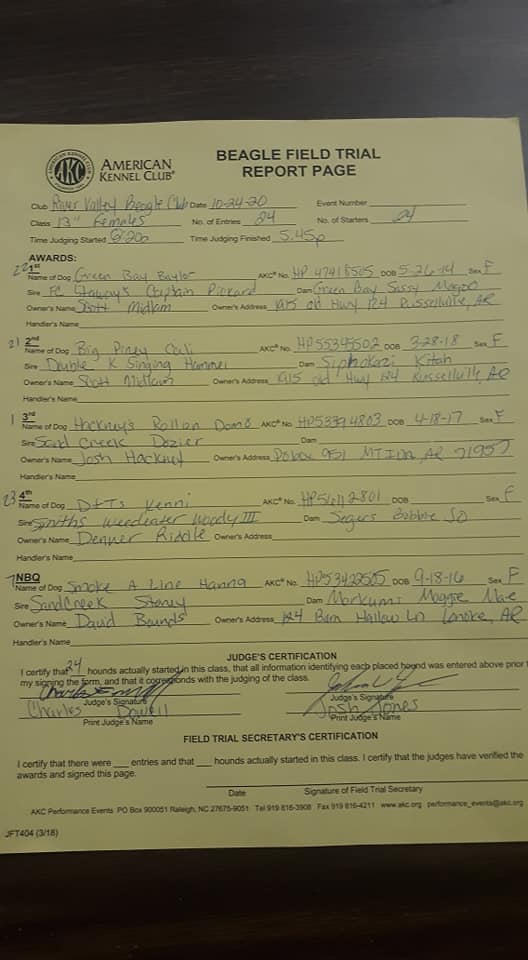 AMERICAN KENNEL CLUB®
BEAGLE FIELD TRIAL REPORT PAGE
Club River Valley Beagle Club Date 10-24-20 Event Number
Class 13" Females No. of Entries 24 No. of Starters 24
Time Judging Started 8:20a Time Judging Finished 5:45p
AWARDS:
22 1st
Name of Dog Green Bay Baylor AKC® No. HP 47418505 DOB 5-26-14 Sex F
Sire FC Stalway's Captain Pickard Dam Green Bay Sassy
Owner's Name Scott Midlam Owner's Address 1915 old Hwy 124 Russellville, AR
Handler's Name
21 2nd
Name of Dog Big Piney Cali AKC® No. HP55345502 DOB 3-28-18 Sex F
Sire Double K Singing Hammer Dam Kitah
Owner's Name Scott Midlam Owner's Address 1915 old Hwy 124 Russellville, AR
Handler's Name
1 3rd
Name of Dog Hackney's Rollon AKC® No. HP53394803 DOB 4-18-17 Sex F
Sire Sand Creek Dozier Dam
Owner's Name Josh Hackney Owner's Address PO box 951 MT IDA, AR 71957
Handler's Name
23 4th
Name of Dog D+Ts Kenni AKC® No. DOB Sex F
Sire Smiths Weedeater Woody III Dam Segers Bobbie Jo
Owner's Name Denver Riddle Owner's Address
Handler's Name
7 NBQ
Name of Dog Smoke A Line Hanna AKC® No. HP53422505 DOB 9-18-16 Sex F
Sire SandCreek Stoney Dam Markums Maggie Mae
Owner's Name David Bounds Owner's Address 124 Barn Hallow Ln Lonoke, AR
Handler's Name
JUDGE'S CERTIFICATION
I certify that 24 hounds actually started in this class, that all information identifying each placed hound was entered above prior t
my signing the form, and that it corresponds with the judging of the class.
Judge's Signature Judge's Signature
Charles Dowell Josh Jones
Print Judge's Name Print Judge's Name
FIELD TRIAL SECRETARY'S CERTIFICATION
I certify that there were ___ entries and that ___ hounds actually started in this class. I certify that the judges have verified the
awards and signed this page.
Date Signature of Field Trial Secretary
AKC Performance Events PO Box 900051 Raleigh, NC 27675-9051 Tel 919 816-3908 Fax 919 816-4211 www.akc.org performance_events@akc.org
JFT404 (3/18)